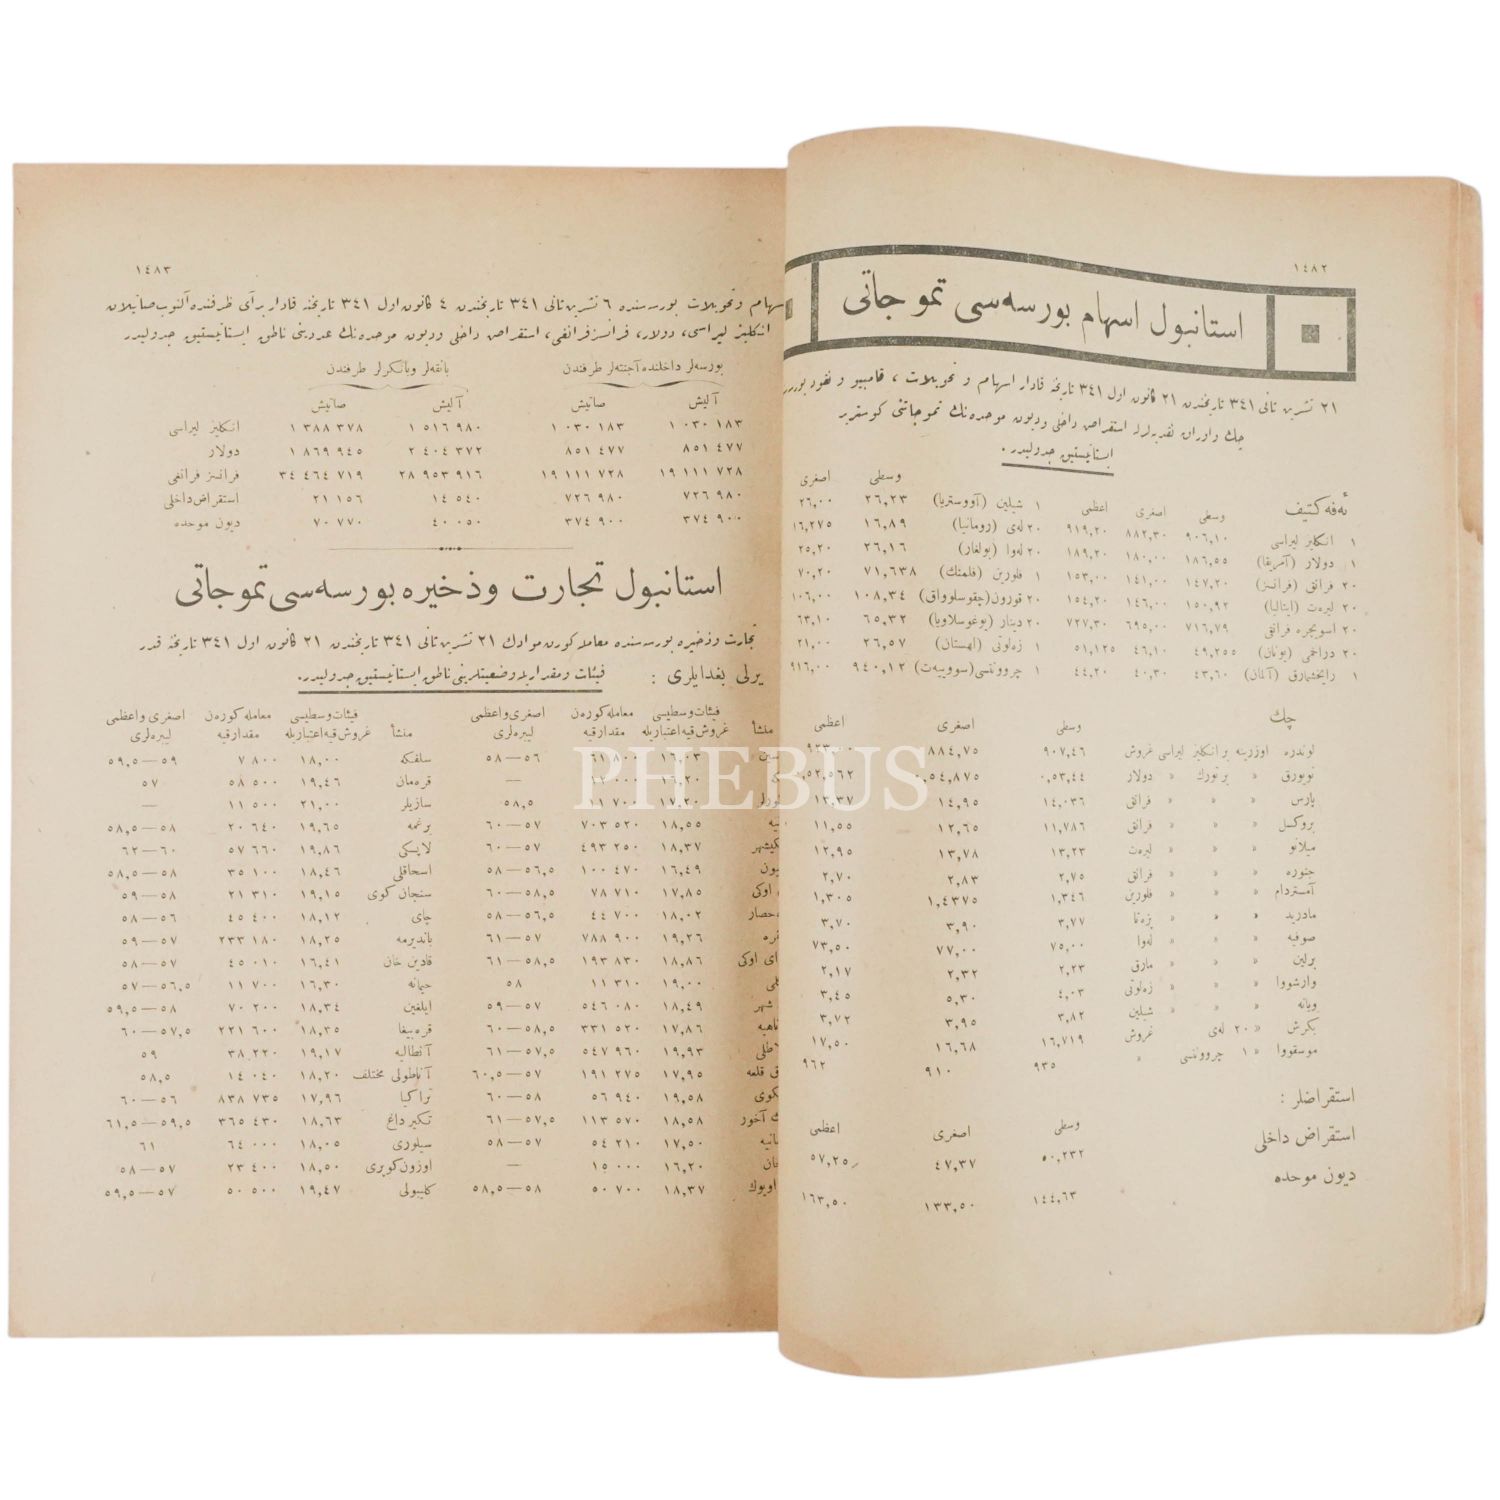 ١٤٨٢
استانبول اسهام بورسه‌سی تموجاتی
٢١ تشرین ثانی ٣٤١ تاریخندن ٢١ كانون اول ٣٤١ تاریخنه قادار اسهام و تحویلات ، قامبیو و نقود بورسه
چك و اوراق نقدیه‌لرله استقراض داخلی و دیون موحده‌نك تموجاتنی كوستریر
ایستاتیستیق جدولیدر .
ئه‌فه‌كتیف وسطی اصغری اعظمی وسطی اصغری
١ انكلیز لیراسی ٩٠٦,١٠ ٨٨٢,٣٠ ٩١٩,٢٠ ١ شیلین (آووستریا) ٢٦,٢٣ ٢٦,٠٠
١ دولار (آمریقا) ١٨٦,٥٥ ١٨٠,٠٠ ١٨٩,٢٠ ٢٠ له‌ی (رومانیا) ١٦,٨٩ ١٦,٢٧٥
٢٠ فرانق (فرانسز) ١٤٧,٢٠ ١٤١,٠٠ ١٥٣,٠٠ ٢٠ له‌وا (بولغار) ٢٦,١٦ ٢٥,٢٠
٢٠ لیره‌ت (ایتالیا) ١٥٠,٩٢ ١٤٦,٠٠ ١٥٤,٢٠ ١ فلورین (فلمنك) ٧١,٦٣٨ ٧٠,٢٠
٢٠ اسویچره فرانقی ٧١٦,٧٩ ٦٩٥,٠٠ ٧٢٧,٣٠ ٢٠ قورون(چقوسلوواق) ١٠٨,٣٤ ١٠٦,٠٠
٢٠ دراخمی (یونان) ٤٩,٢٥٥ ٤٦,١٠ ٥١,١٢٥ ٢٠ دینار (یوغوسلاویا) ٦٥,٣٢ ٦٣,١٠
١ رایخشمارق (آلمان) ٤٣,٦٠ ٤٠,٣٠ ٤٤,٢٠ ١ زه‌لوتی (لهستان) ٢٦,٥٧ ٢١,٠٠
١ چرووتسی(سووییه‌ت) ٩٤٠,١٢ ٩١٦,٠٠
چك وسطی اصغری اعظمی
لوندره اوزرینه بر انكلیز لیراسی غروش ٩٠٧,٤٦ ٨٨٤,٧٥
نویورق » بر تورك » دولار ٠,٥٣,٤٤ ٠,٥٤,٨٧٥ ٥٢,٥٦٢
پارس » » » فرانق ١٤,٠٣٦ ١٤,٩٥ ١٣,٣٧
بروكسل » » » فرانق ١١,٧٨٦ ١٢,٦٥ ١١,٥٥
میلانو » » » لیره‌ت ١٣,٢٣ ١٣,٧٨ ١٢,٩٥
جنوره » » » فرانق ٢,٧٥ ٢,٨٣ ٢,٧٠
آمستردام » » » فلورین ١,٣٤٦ ١,٤٣٧٥ ١,٣٠٥
مادرید » » » پزه‌تا ٣,٧٧ ٣,٩٠ ٣,٧٠
صوفیه » » » له‌وا ٧٥,٠٠ ٧٧,٠٠ ٧٣,٥٠
برلین » » » مارق ٢,٢٣ ٢,٣٢ ٢,١٧
وارشووا » » » زه‌لوتی ٤,٠٣ ٥,٣٠ ٣,٤٥
ویانه » » » شیلین ٣,٨٢ ٣,٩٥ ٣,٧٢
بكرش » ٢٠ له‌ی غروش ١٦,٧١٩ ١٦,٦٨ ١٧,٥٠
موسقووا » ١ چرووتسی » ٩٣٥ ٩١٠ ٩٦٢
استقراضلر :
وسطی اصغری اعظمی
استقراض داخلی ٥٠,٢٣٢ ٤٧,٣٧ ٥٧,٢٥
دیون موحده ١٤٤,٦٣ ١٣٣,٥٠ ١٦٣,٥٠
١٤٨٣
سهام و تحویلات بورسه‌سنده ٦ تشرین ثانی ٣٤١ تاریخندن ٤ كانون اول ٣٤١ تاریخنه قادار بر آی ظرفنده آلنوب صاتیلان
انكلیز لیراسی، دولار، فرانسز فرانغی، استقراض داخلی و دیون موحده‌نك عددینی ناطق ایستاتیستیق جدولیدر
بورسه‌لر داخلنده آجنته‌لر طرفندن بانقه‌لر و بانكرلر طرفندن
آلیش صاتیش آلیش صاتیش
١ ٠٣٠ ١٨٣ ١ ٠٣٠ ١٨٣ ١ ٥١٦ ٩٨٠ ١ ٣٨٨ ٣٧٨ انكلیز لیراسی
٨٥١ ٤٧٧ ٨٥١ ٤٧٧ ٢ ٤٠٤ ٣٧٢ ١ ٨٦٩ ٩٤٥ دولار
١٩ ١١١ ٧٢٨ ١٩ ١١١ ٧٢٨ ٢٨ ٩٥٣ ٩١٦ ٣٤ ٤٦٤ ٧١٩ فرانسز فرانغی
٧٢٦ ٩٨٠ ٧٢٦ ٩٨٠ ١٤ ٥٤٠ ٢١ ١٥٦ استقراض داخلی
٣٧٤ ٩٠٠ ٣٧٤ ٩٠٠ ٤٠ ٠٥٠ ٧٠ ٧٧٠ دیون موحده
استانبول تجارت و ذخیره بورسه‌سی تموجاتی
تجارت و ذخیره بورسه‌سنده معامله كورن موادك ٢١ تشرین ثانی ٣٤١ تاریخندن ٢١ كانون اول ٣٤١ تاریخنه قدر
یرلی بغدایلری : فیئات و مقدارلریله وضعیتلرینی ناطق ایستاتیستیق جدولیدر.
منشأ فیئات وسطیسی غروش قیه اعتباریله معامله كوره‌ن مقدار قیه اصغری و اعظمی لیبره‌لری منشأ فیئات وسطیسی غروش قیه اعتباریله معامله كوره‌ن مقدار قیه اصغری و اعظمی لیبره‌لری
١٦,٠٣ ٦١ ٨٠٠ ٥٦—٥٨ سلفكه ١٨,٠٠ ٧ ٨٠٠ ٥٩—٥٩,٥
١٦,٢٠ — قره‌مان ١٩,٤٦ ٥٨ ٥٠٠ ٥٧
١٧,٢٠ ١١ ٧٠٠ ٥٨,٥ سازیلر ٢١,٠٠ ١١ ٥٠٠ —
١٨,٥٥ ٧٠٣ ٥٢٠ ٥٧—٦٠ برغمه ١٩,٦٥ ٢٠ ٦٤٠ ٥٨—٥٨,٥
١٨,٣٧ ٤٩٣ ٢٥٠ ٥٧—٦٠ لاپسكی ١٩,٨٦ ٥٧ ٦٦٠ ٦٠—٦٢
١٦,٤٩ ١٠٠ ٤٧٠ ٥٦,٥—٥٨ اسحاقلی ١٨,٤٦ ٣٥ ١٠٠ ٥٨—٥٨,٥
١٧,٨٥ ٧٨ ٧١٠ ٥٨,٥—٦٠ سنجان كوی ١٩,١٥ ٢١ ٣١٠ ٥٨—٥٩
١٨,٠٢ ٤٤ ٧٠٠ ٥٦,٥—٥٨ چای ١٨,١٢ ٤٥ ٤٠٠ ٥٦—٥٨
١٩,٢٦ ٧٨٨ ٩٠٠ ٥٧—٦١ باندیرمه ١٨,٢٥ ٢٣٣ ١٨٠ ٥٧—٥٩
١٨,٨٦ ١٩٣ ٨٣٠ ٥٨,٥—٦١ قادین خان ١٦,٤١ ٤٥ ٠١٠ ٥٧—٥٨
١٩,٠٠ ١١ ٣١٠ ٥٨ حیمانه ١٦,٣٠ ١١ ٧٠٠ ٥٦,٥—٥٧
١٨,٤٩ ٥٤٦ ٠٨٠ ٥٧—٥٩ ایلغین ١٨,٣٤ ٧٠ ٢٠٠ ٥٨—٥٩,٥
١٧,٨٦ ٣٣١ ٥٢٠ ٥٨,٥—٦٠ قره‌بیغا ١٨,٣٥ ٢٢١ ٦٠٠ ٥٧,٥—٦٠
١٩,٩٣ ٥٤٧ ٩٦٠ ٥٧,٥—٦١ آنطالیه ١٩,١٧ ٣٨ ٢٢٠ ٥٩
١٧,٩٥ ١٩١ ٢٧٥ ٥٧—٦٠,٥ آناطولی مختلف ١٨,٢٠ ١٤ ٠٤٠ ٥٨,٥
١٩,٥٨ ٥٦ ٩٤٠ ٥٨—٦٠ تراكیا ١٧,٩٦ ٨٣٨ ٧٣٥ ٥٦—٦٠
١٨,٥٨ ١١٣ ٥٧٠ ٥٧,٥—٦١ تكیرداغ ١٨,٦٣ ٣٦٥ ٤٣٠ ٥٩,٥—٦١,٥
١٧,٥٠ ٥٤ ٢١٠ ٥٧—٥٨ سیلوری ١٨,٠٥ ٦٤ ٠٠٠ ٦١
١٦,٢٠ ١٥ ٠٠٠ — اوزون كوپری ١٨,٥٠ ٢٣ ٤٠٠ ٥٧—٥٨
١٨,٣٧ ٥٠ ٧٠٠ ٥٨—٥٨,٥ كلیبولی ١٩,٤٧ ٥٠ ٥٠٠ ٥٧—٥٩,٥
PHEBUS